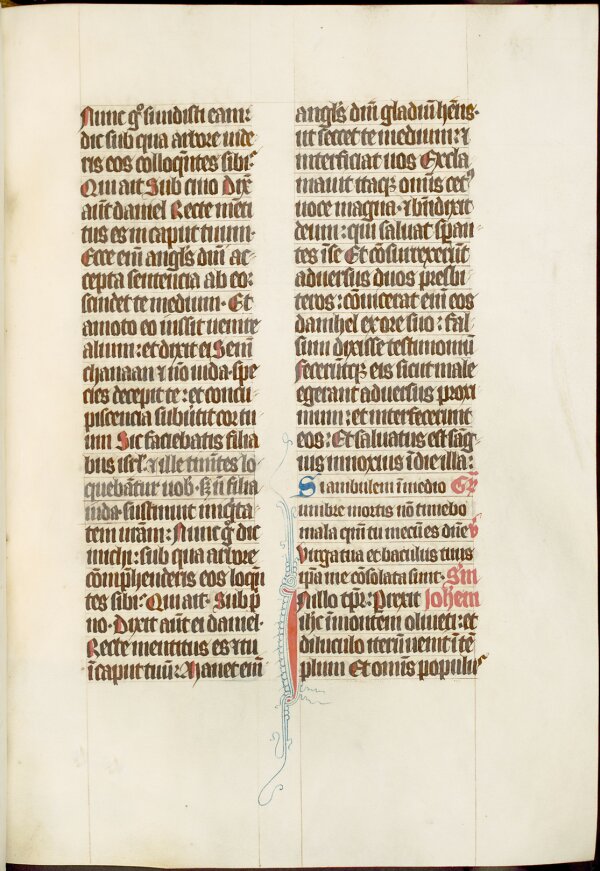 Nunc gͦ si uidisti eam:
dic sub qua arbore uide
ris eos colloqn̄tes sibi
Qui ait Sub cino Dix̄
aūt daniel Recte mēti
tus es in caput tuum.
Ecce eīm angls̄ dn̄i ac
cepta sentencia ab eo:
scindet te medium. Et
amoto eo iussit uenire
alium: et dixit ei Semē
chanaan ⁊ nō iuda. spe
cies decepit te: et concu
piscencia subūtit cor tu
um Sic faciebatis filia
bus isrl̄. ⁊ ille timētes lo
quebātur uob. sꝫ n̄ filia
iuda sustinuit iniq̄ta
tem ur̄am: Nunc gͦ dic
michi: sub qua arbore
cōmp̄henderis eos loqn̄
tes sibi. Qui ait. Sub p̄
no. Dixit aūt ei daniel.
Recte mentitus es ⁊ tu
ī caput tuū: Manet eīm
angls̄ dn̄i gladiū hēns.
ut secet te medium: ⁊
interficiat uos Excla
mauit itaqꝫ omīs cetꝰ
uoce magna. ⁊ bn̄dixit
deum: qui saluat sꝑan
tes ī se Et cōsurrexerūt
aduersus duos presbi
teros: cōuicerat eīm eos
danihel ex ore suo: fal
sum dixisse testimoniū
Feceruntqꝫ eis sicut male
egerant aduersus proxi
mum: et interfecerunt
eos: Et saluatus est sāg
uis innoxius ī die illa:
Si ambulem ī medio Gr̄
umbre mortis nō timebo
mala qm̄ tu mecū es dn̄e V̄
Virga tua et baculus tuus
ip̄a me cōsolata sunt. Sm̄
In illo tp̄r: Prexit Johem
ihc̄ in montem oliueti: et
diluculo iterū uenit ī tē
plum Et omīs populus